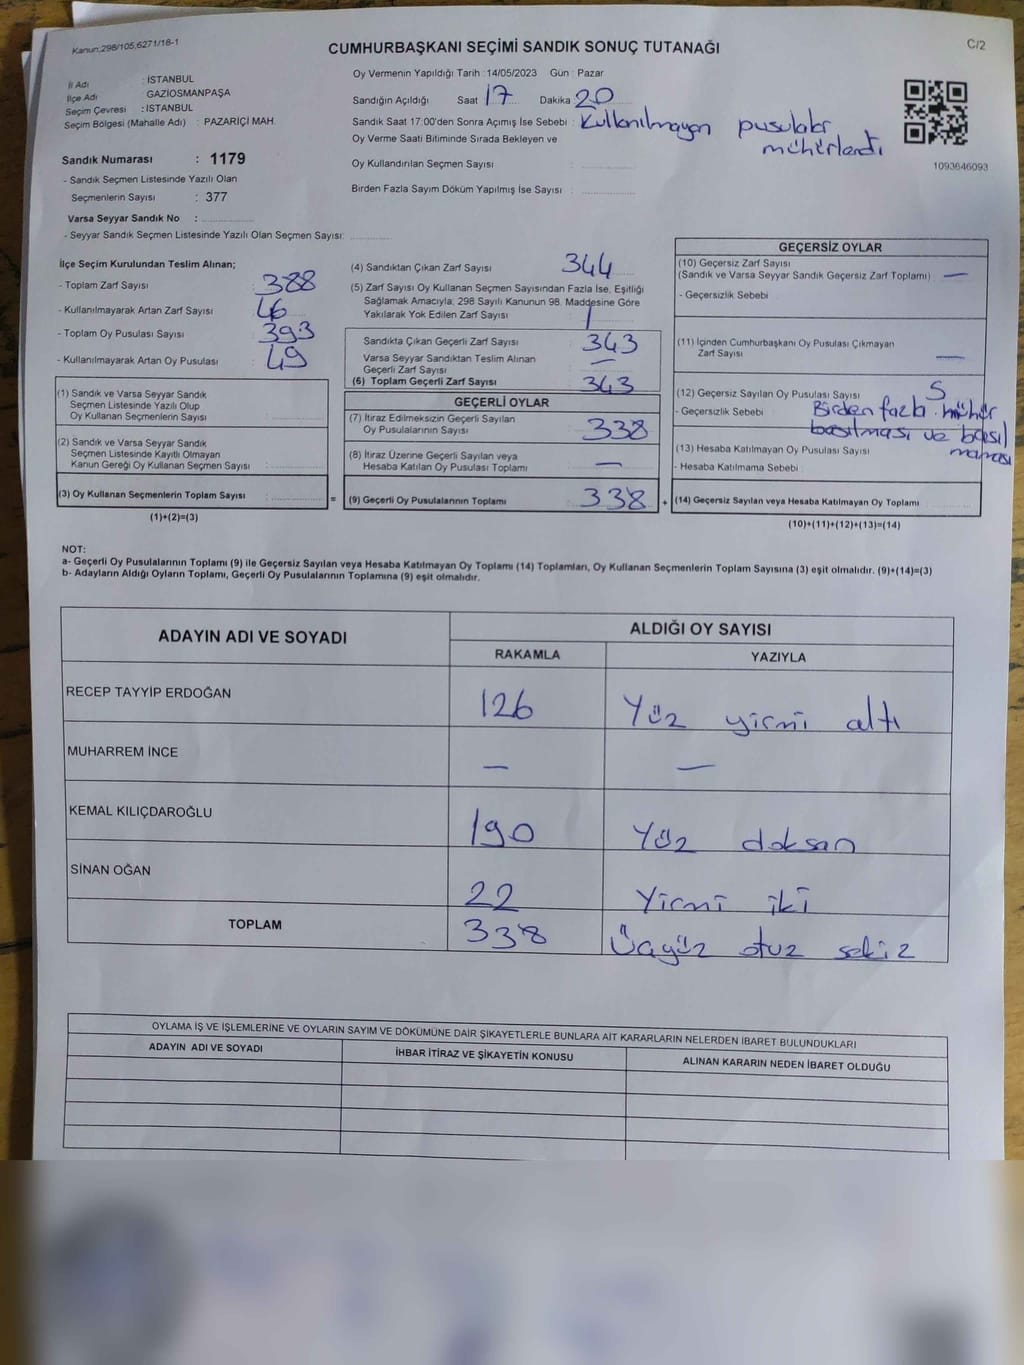 Kanun:298/105,6271/18-1
CUMHURBAŞKANI SEÇİMİ SANDIK SONUÇ TUTANAĞI
C/2
İl Adı : İSTANBUL
İlçe Adı : GAZİOSMANPAŞA
Seçim Çevresi : İSTANBUL
Seçim Bölgesi (Mahalle Adı) : PAZARİÇİ MAH.
Sandık Numarası : 1179
- Sandık Seçmen Listesinde Yazılı Olan
Seçmenlerin Sayısı : 377
Varsa Seyyar Sandık No :
- Seyyar Sandık Seçmen Listesinde Yazılı Olan Seçmen Sayısı:
Oy Vermenin Yapıldığı Tarih : 14/05/2023 Gün : Pazar
Sandığın Açıldığı Saat 17 Dakika 20
Sandık Saat 17:00'den Sonra Açımış İse Sebebi : Kullanılmayan pusulalar
mühürlendi
Oy Verme Saati Bitiminde Sırada Bekleyen ve
Oy Kullandırılan Seçmen Sayısı :
Birden Fazla Sayım Döküm Yapılmış İse Sayısı :
1093646093
İlçe Seçim Kurulundan Teslim Alınan;
- Toplam Zarf Sayısı : 388
- Kullanılmayarak Artan Zarf Sayısı : 46
- Toplam Oy Pusulası Sayısı : 393
- Kullanılmayarak Artan Oy Pusulası : 49
(1) Sandık ve Varsa Seyyar Sandık
Seçmen Listesinde Yazılı Olup
Oy Kullanan Seçmenlerin Sayısı :
(2) Sandık ve Varsa Seyyar Sandık
Seçmen Listesinde Kayıtlı Olmayan
Kanun Gereği Oy Kullanan Seçmen Sayısı :
(3) Oy Kullanan Seçmenlerin Toplam Sayısı : =
(1)+(2)=(3)
(4) Sandıktan Çıkan Zarf Sayısı : 344
(5) Zarf Sayısı Oy Kullanan Seçmen Sayısından Fazla İse, Eşitliği
Sağlamak Amacıyla, 298 Sayılı Kanunun 98. Maddesine Göre
Yakılarak Yok Edilen Zarf Sayısı : 1
Sandıkta Çıkan Geçerli Zarf Sayısı : 343
Varsa Seyyar Sandıktan Teslim Alınan
Geçerli Zarf Sayısı : —
(6) Toplam Geçerli Zarf Sayısı : 343
GEÇERLİ OYLAR
(7) İtiraz Edilmeksizin Geçerli Sayılan
Oy Pusulalarının Sayısı : 338
(8) İtiraz Üzerine Geçerli Sayılan veya
Hesaba Katılan Oy Pusulası Toplamı : —
(9) Geçerli Oy Pusulalarının Toplamı : 338 +
GEÇERSİZ OYLAR
(10) Geçersiz Zarf Sayısı
(Sandık ve Varsa Seyyar Sandık Geçersiz Zarf Toplamı) : —
- Geçersizlik Sebebi
(11) İçinden Cumhurbaşkanı Oy Pusulası Çıkmayan
Zarf Sayısı : —
(12) Geçersiz Sayılan Oy Pusulası Sayısı : 5
- Geçersizlik Sebebi : Birden fazla mühür
basılması ve basıl
maması
(13) Hesaba Katılmayan Oy Pusulası Sayısı :
- Hesaba Katılmama Sebebi :
(14) Geçersiz Sayılan veya Hesaba Katılmayan Oy Toplamı :
(10)+(11)+(12)+(13)=(14)
NOT:
a- Geçerli Oy Pusulalarının Toplamı (9) ile Geçersiz Sayılan veya Hesaba Katılmayan Oy Toplamı (14) Toplamları, Oy Kullanan Seçmenlerin Toplam Sayısına (3) eşit olmalıdır. (9)+(14)=(3)
b- Adayların Aldığı Oyların Toplamı, Geçerli Oy Pusulalarının Toplamına (9) eşit olmalıdır.
ADAYIN ADI VE SOYADI
ALDIĞI OY SAYISI
RAKAMLA YAZIYLA
RECEP TAYYİP ERDOĞAN 126 Yüz yirmi altı
MUHARREM İNCE — —
KEMAL KILIÇDAROĞLU 190 Yüz doksan
SİNAN OĞAN 22 Yirmi iki
TOPLAM 338 Üçyüz otuz sekiz
OYLAMA İŞ VE İŞLEMLERİNE VE OYLARIN SAYIM VE DÖKÜMÜNE DAİR ŞİKAYETLERLE BUNLARA AİT KARARLARIN NELERDEN İBARET BULUNDUKLARI
ADAYIN ADI VE SOYADI İHBAR İTİRAZ VE ŞİKAYETİN KONUSU ALINAN KARARIN NEDEN İBARET OLDUĞU